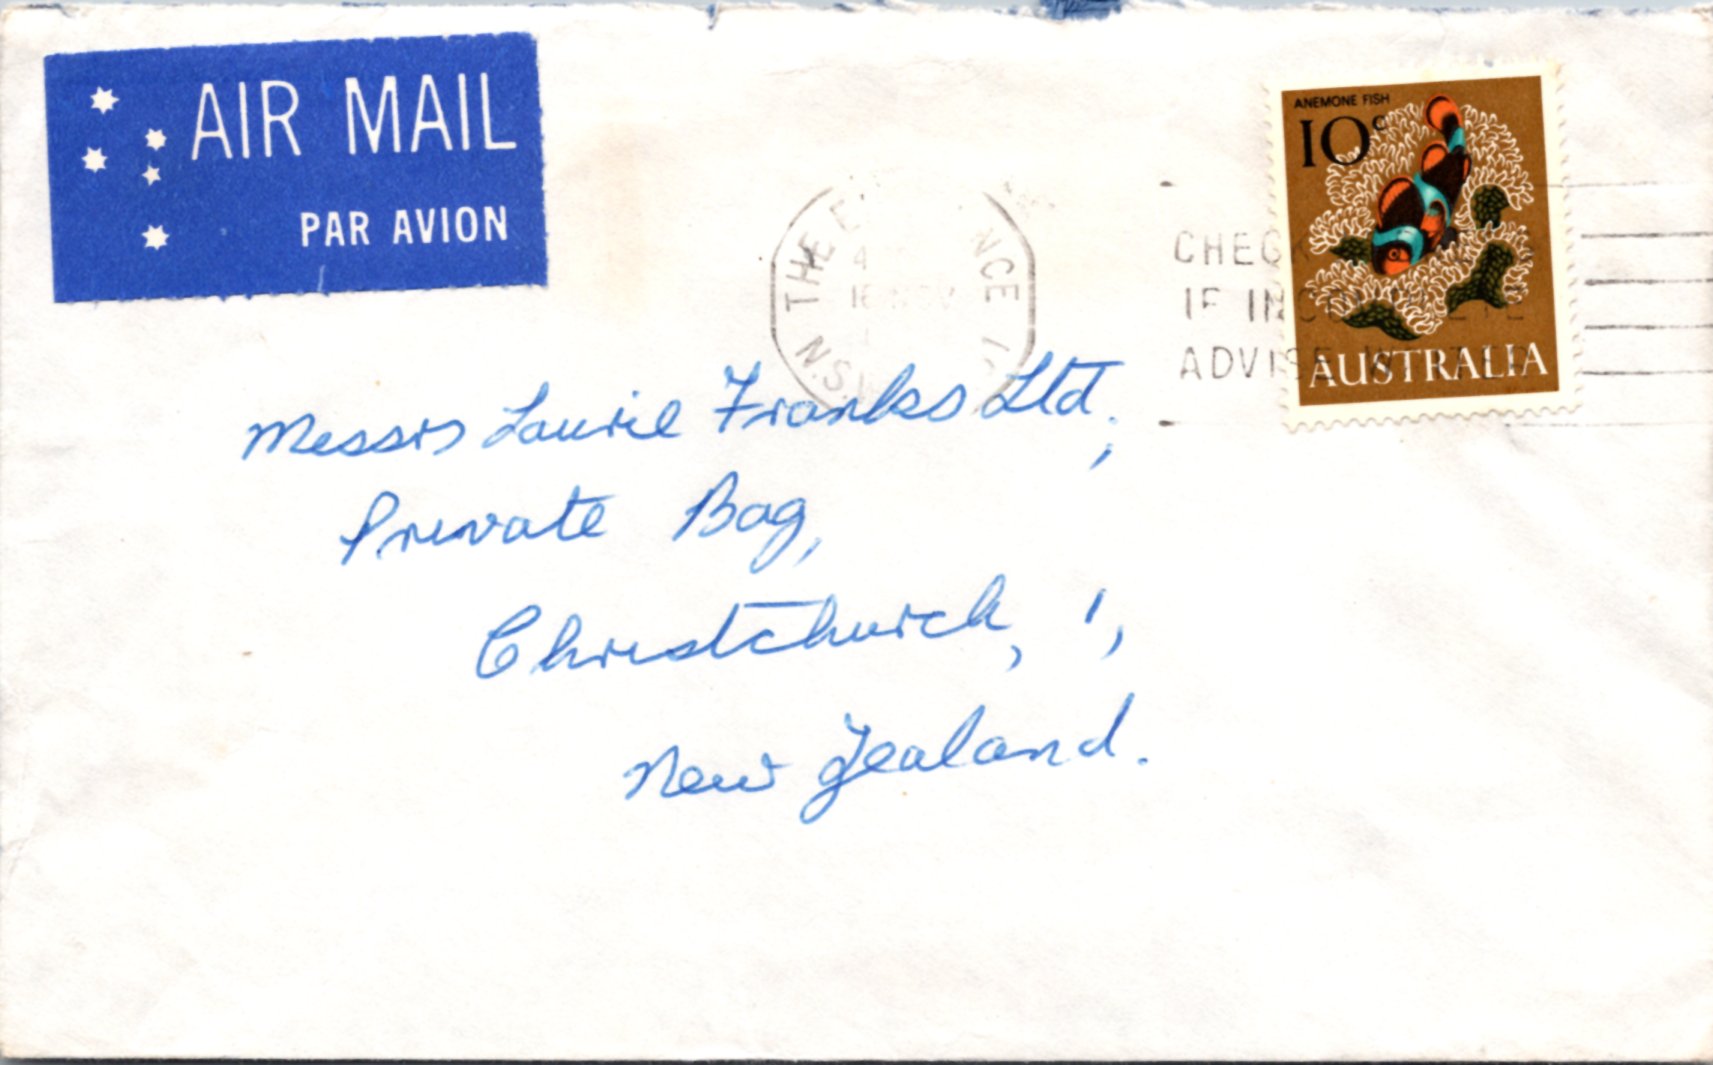 AIR MAIL
PAR AVION
ANEMONE FISH
10c
AUSTRALIA
THE
N.S.W.
4
16 NOV
CHECK
IF
ADVISE
Messrs Laurie Franks Ltd.,
Private Bag,
Christchurch, 1,
New Zealand.